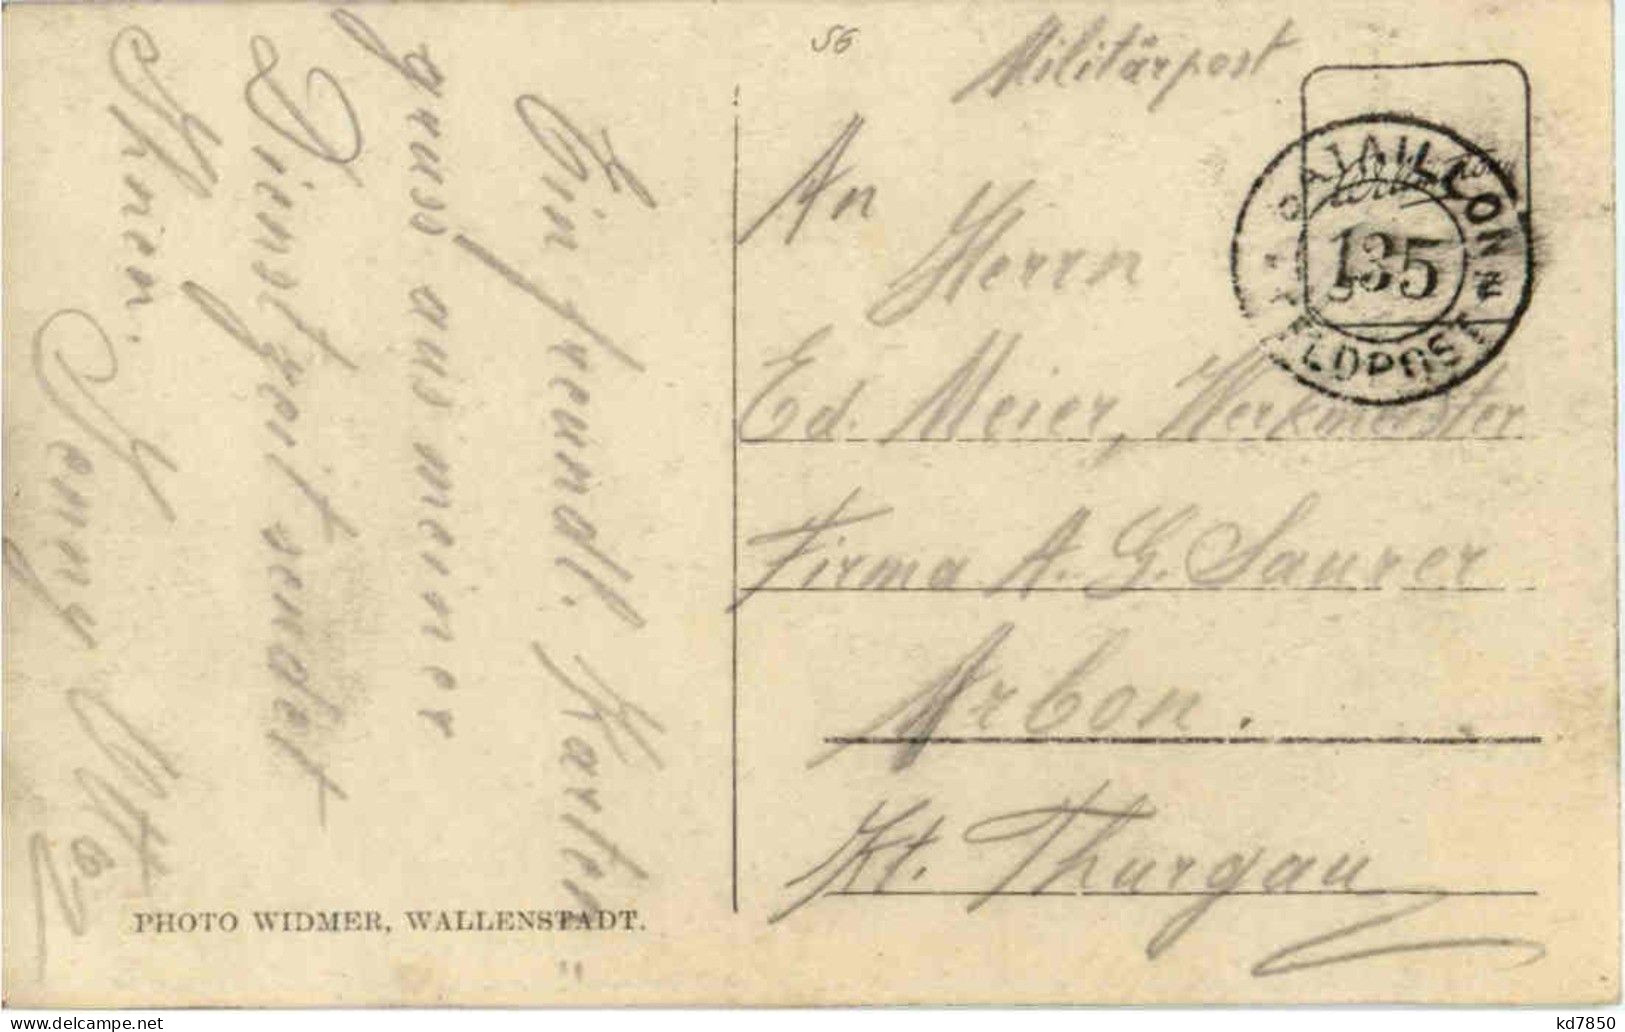 56
Militärpost
An
Herrn
Ed. Meier, Werkmeister
Firma A. G. Saurer
Arbon.
Kt. Thurgau
BATAILLON
135
FELDPOST
Ein freundl. Karten-
gruss aus meiner
Dienstzeit sendet
Ihnen.
Jenny
PHOTO WIDMER, WALLENSTADT.
kd7850